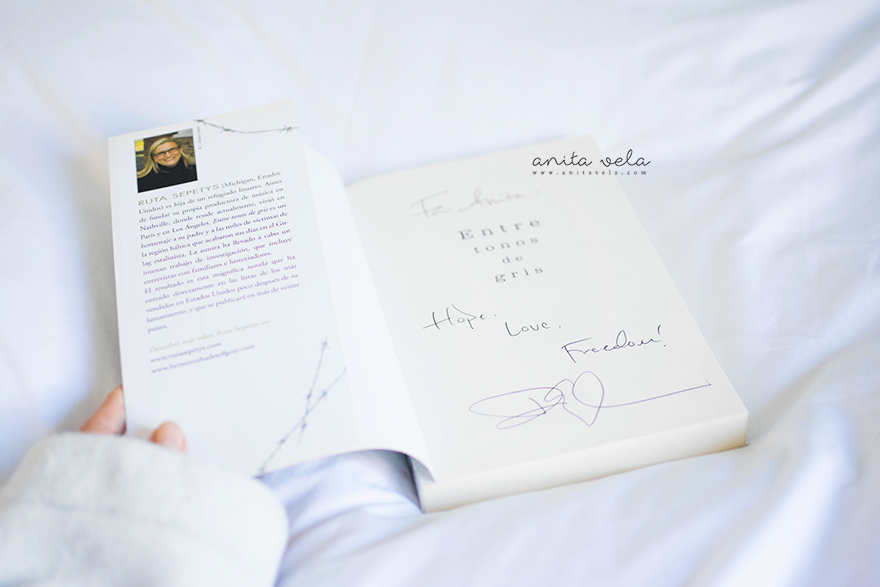 anita vela
www.anitavela.com
RUTA SEPETYS (Michigan, Estados
Unidos) es hija de un refugiado lituano. Antes
de fundar su propia productora de música en
Nashville, donde reside actualmente, vivió en
París y en Los Ángeles. Entre tonos de gris es un
homenaje a su padre y a las miles de víctimas de
la región báltica que acabaron sus días en el Gu-
lag estalinista. La autora ha llevado a cabo un
intenso trabajo de investigación, que incluye
entrevistas con familiares e historiadores.
El resultado es esta magnífica novela que ha
entrado directamente en las listas de los más
vendidos en Estados Unidos poco después de su
lanzamiento, y que se publicará en más de veinte
países.
Descubre más sobre Ruta Sepetys en:
www.rutasepetys.com
www.betweenshadesofgray.com
For Anita
Entre
tonos
de
gris
Hope.
Love.
Freedom!